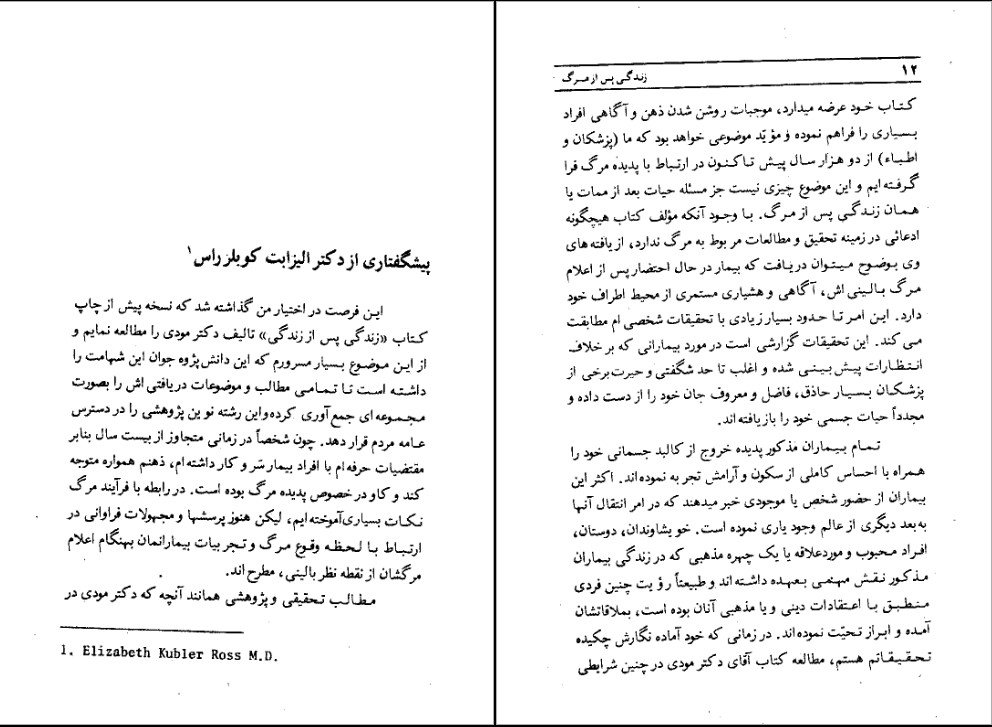 پیشگفتاری از دکتر الیزابت کوبلر راس¹
این فرصت در اختیار من گذاشته شد که نسخه پیش از چاپ
کتاب «زندگی پس از زندگی» تالیف دکتر مودی را مطالعه نمایم و
از این موضوع بسیار مسرورم که این دانش‌پژوه جوان این شهامت را
داشته است تا تمامی مطالب و موضوعات دریافتی اش را بصورت
مجموعه ای جمع آوری کرده و این رشته نوین پژوهشی را در دسترس
عامه مردم قرار دهد. چون شخصاً در زمانی متجاوز از بیست سال بنابر
مقتضیات حرفه ام با افراد بیمار سَر و کار داشته ام، ذهنم همواره متوجه
کند و کاو در خصوص پدیده مرگ بوده است. در رابطه با فرآیند مرگ
نکات بسیاری آموخته ایم، لیکن هنوز پرسشها و مجهولات فراوانی در
ارتباط با لحظه وقوع مرگ و تجربیات بیمارانمان بهنگام اعلام
مرگشان از نقطه نظر بالینی، مطرح اند.
مطالب تحقیقی و پژوهشی همانند آنچه که دکتر مودی در
1. Elizabeth Kubler Ross M.D.
۱۲ زندگی پس از مرگ
کتاب خود عرضه میدارد، موجبات روشن شدن ذهن و آگاهی افراد
بسیاری را فراهم نموده و مؤیّد موضوعی خواهد بود که ما (پزشکان و
اطباء) از دو هزار سال پیش تاکنون در ارتباط با پدیده مرگ فرا
گرفته ایم و این موضوع چیزی نیست جز مسئله حیات بعد از ممات یا
همان زندگی پس از مرگ. با وجود آنکه مؤلف کتاب هیچگونه
ادعائی در زمینه تحقیق و مطالعات مربوط به مرگ ندارد، از یافته های
وی بوضوح میتوان دریافت که بیمار در حال احتضار پس از اعلام
مرگ بالینی اش، آگاهی و هشیاری مستمری از محیط اطراف خود
دارد. این امر تا حدود بسیار زیادی با تحقیقات شخصی ام مطابقت
می کند. این تحقیقات گزارشی است در مورد بیمارانی که برخلاف
انتظارات پیش بینی شده و اغلب تا حد شگفتی و حیرت برخی از
پزشکان بسیار حاذق، فاضل و معروف جان خود را از دست داده و
مجدداً حیات جسمی خود را بازیافته اند.
تمام بیماران مذکور پدیده خروج از کالبد جسمانی خود را
همراه با احساس کاملی از سکون و آرامش تجربه نموده اند. اکثر این
بیماران از حضور شخص یا موجودی خبر میدهند که در امر انتقال آنها
به بعد دیگری از عالم وجود یاری نموده است. خویشاوندان، دوستان،
افراد محبوب و مورد علاقه یا یک چهره مذهبی که در زندگی بیماران
مذکور نقش مهمی بعهده داشته اند و طبیعتاً رؤیت چنین فردی
منطبق با اعتقادات دینی و یا مذهبی آنان بوده است، بملاقاتشان
آمده و ابراز تحیّت نموده اند. در زمانی که خود آماده نگارش چکیده
تحقیقاتم هستم، مطالعه کتاب آقای دکتر مودی در چنین شرایطی